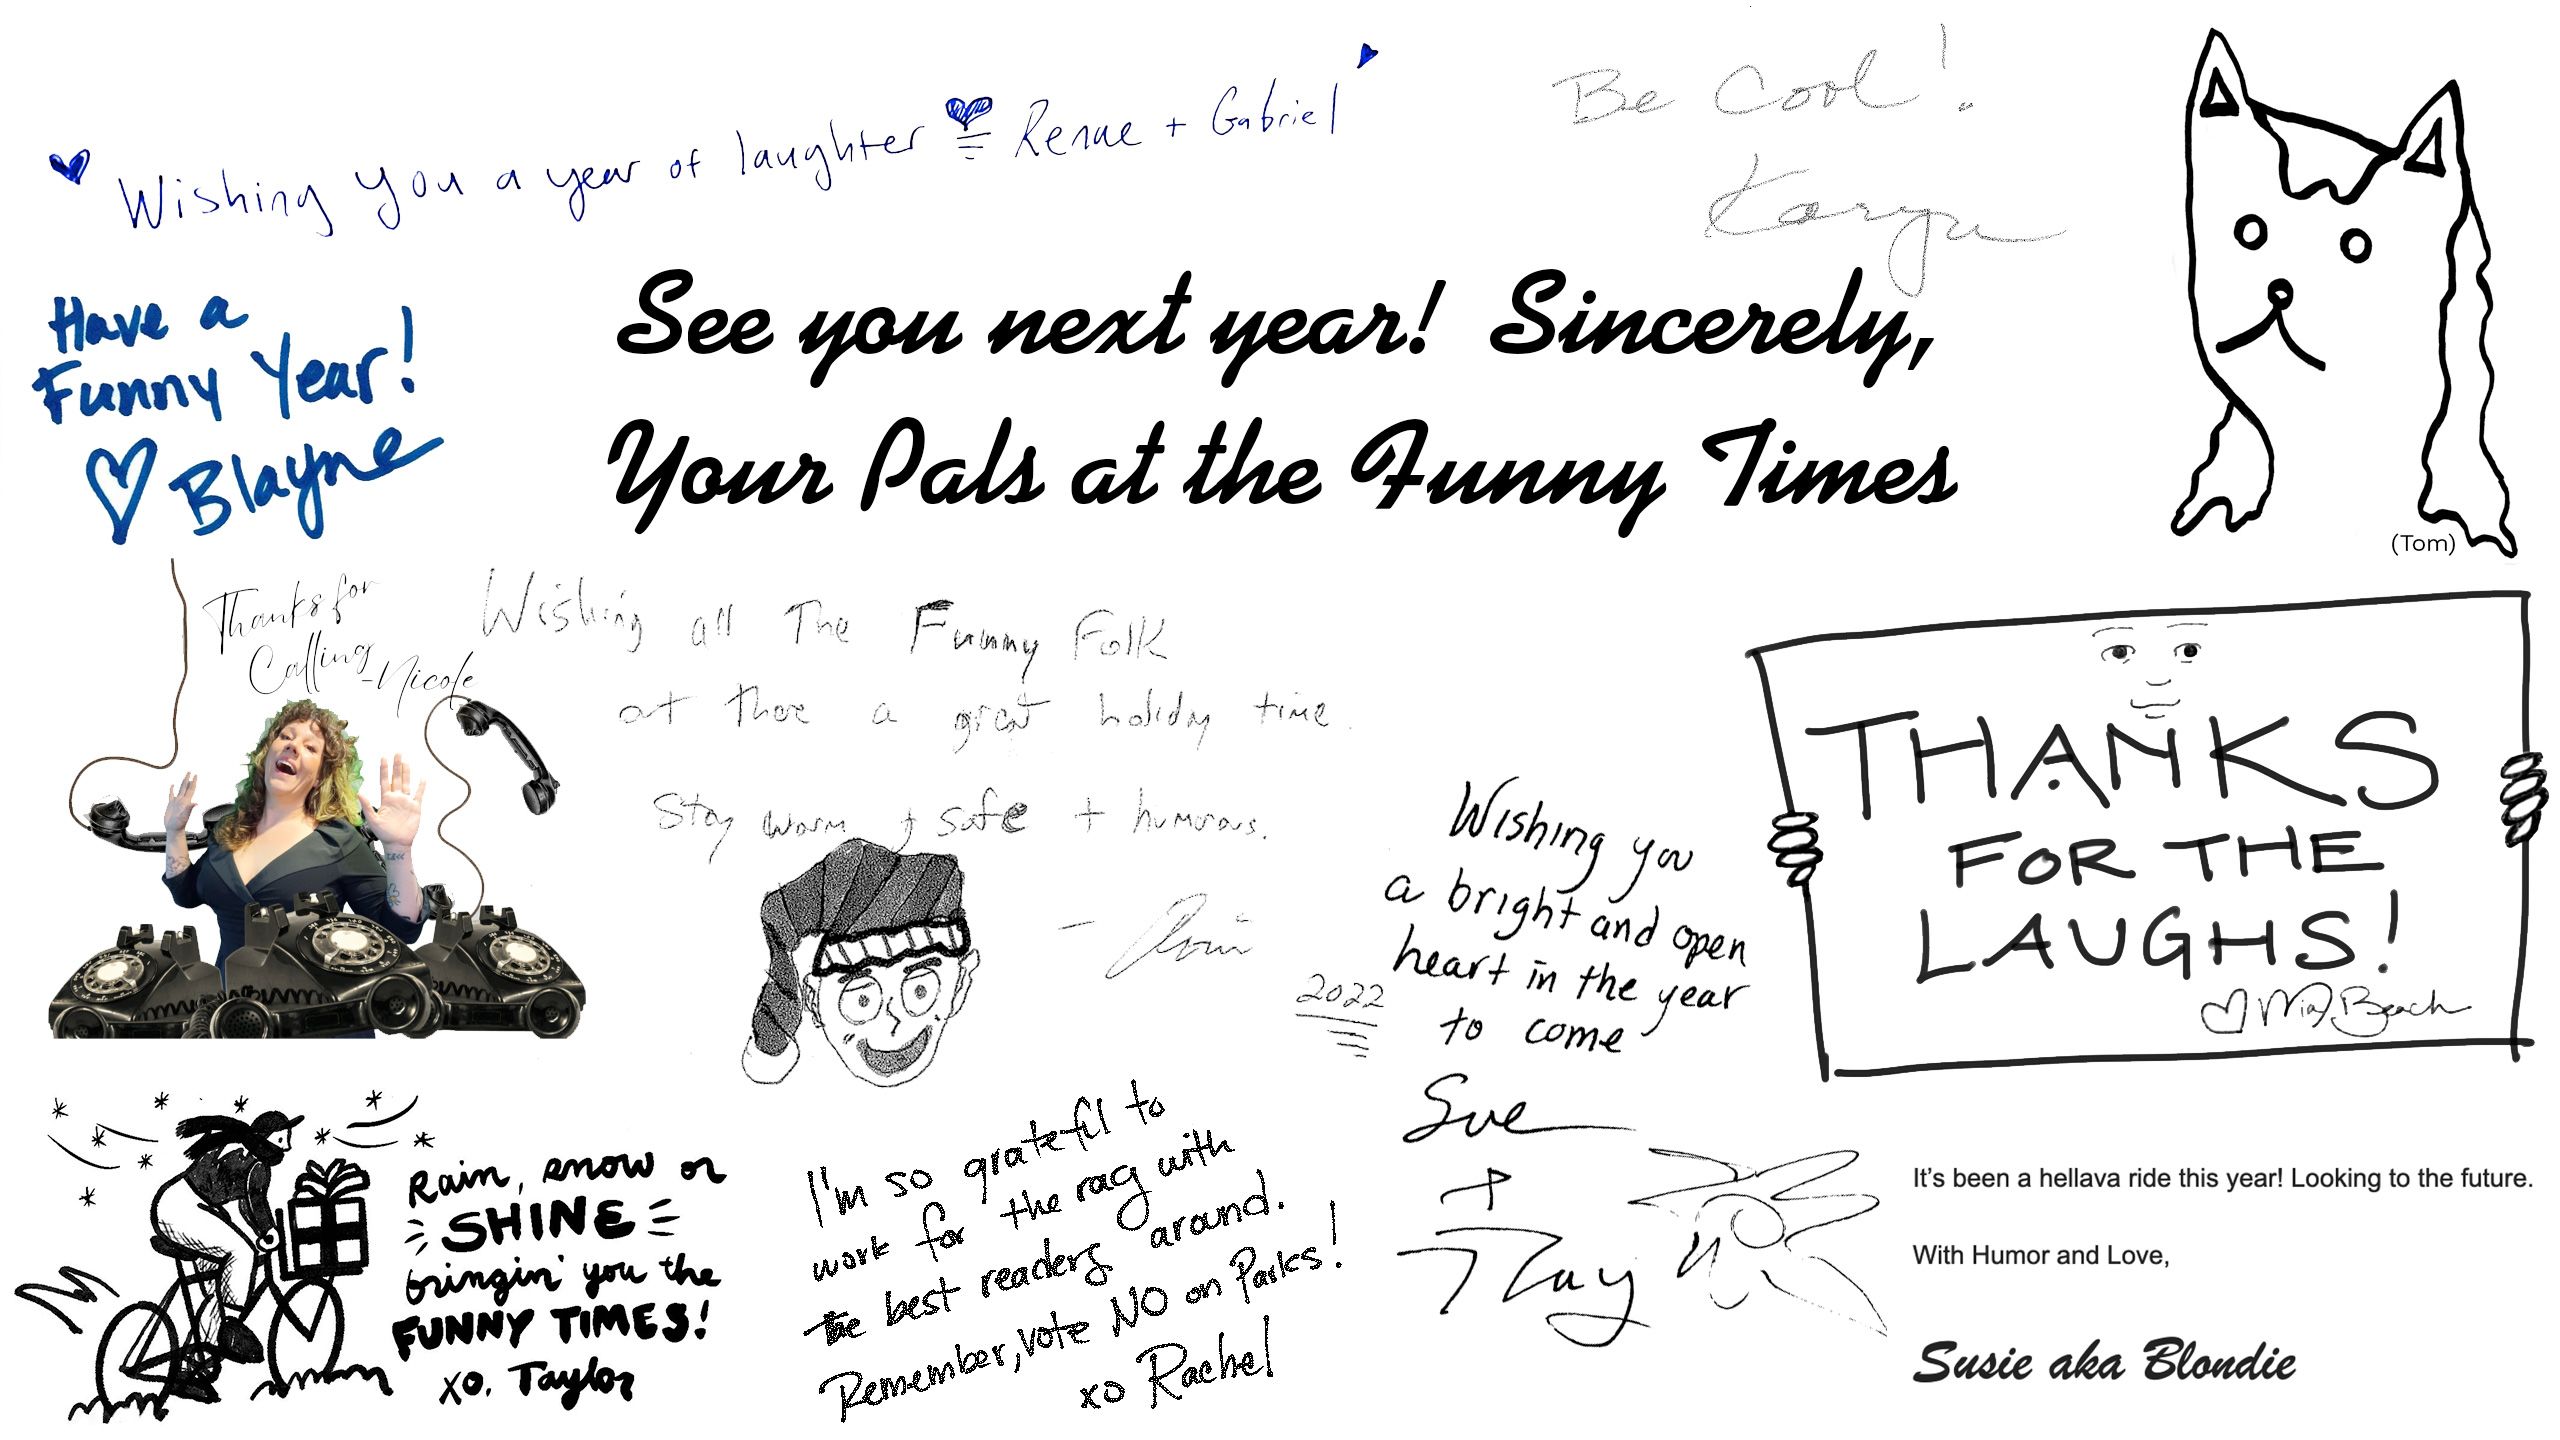 Wishing you a year of laughter Renae + Gabriel
Be Cool!
Karyn
Have a
Funny Year!
Blayne
See you next year! Sincerely,
Your Pals at the Funny Times
(Tom)
Thanks for
Calling
-Nicole
Wishing all The Funny Folk
out there a great holiday time.
Stay warm + safe + humorous.
2022
Wishing you
a bright and open
heart in the year
to come
Sue
+
Ray
THANKS
FOR THE
LAUGHS!
Mia Beach
Rain, snow or
SHINE
bringin' you the
FUNNY TIMES!
xo. Taylor
I'm so grateful to
work for the rag with
the best readers around.
Remember, vote NO on Parks!
xo Rachel
It's been a hellava ride this year! Looking to the future.
With Humor and Love,
Susie aka Blondie